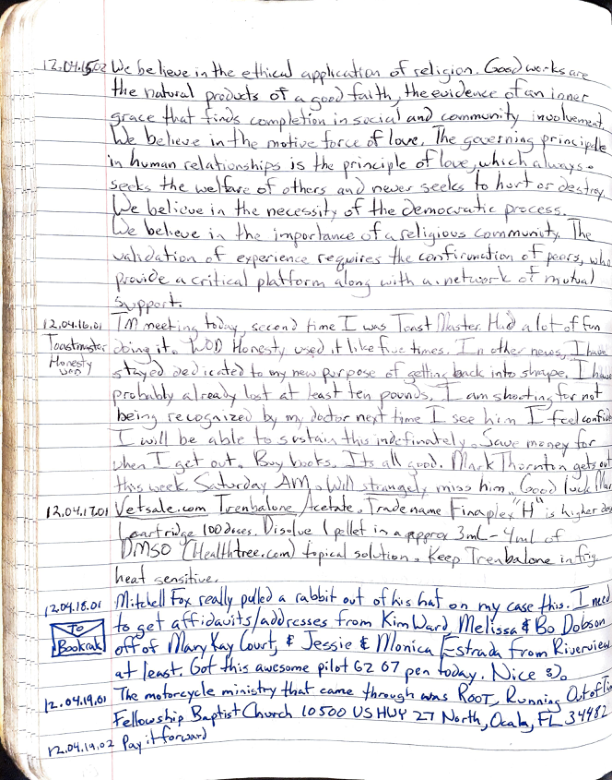 12.04.15.02 We believe in the ethical application of religion. Good works are
the natural products of a good faith, the evidence of an inner
grace that finds completion in social and community involvement.
We believe in the motive force of love. The governing principle
in human relationships is the principle of love, which always
seeks the welfare of others and never seeks to hurt or destroy.
We believe in the necessity of the democratic process.
We believe in the importance of a religious community. The
validation of experience requires the confirmation of peers, who
provide a critical platform along with a network of mutual
support.
12.04.16.01 TM meeting today, second time I was Toast Master. Had a lot of fun
Toastmaster doing it. WOD Honesty used it like five times. In other news, I have
Honesty stayed dedicated to my new purpose of getting back into shape. I have
WOD probably already lost at least ten pounds. I am shooting for not
being recognized by my doctor next time I see him I feel confide
I will be able to sustain this indefinately. Save money for
when I get out. Buy books. Its all good. Mark Thornton gets out
this week. Saturday AM. Will strangely miss him. Good luck Ma
12.04.17.01 Vetsale.com Trenbalone Acetate. Trade name Finaplex "H" is higher dos
1 cartridge 100 doses. Disolve 1 pellet in approx 3mL-4mL of
DMSO (Healthtree.com) topical solution. Keep Trenbalone in frig
heat sensitive.
12.04.18.01 Mitchell Fox really pulled a rabbit out of his hat on my case this. I need
TO to get affidavits/addresses from Kim Ward Melissa & Bo Dobson
Bookrak off of Mary Kay Court, & Jessie & Monica Estrada from Riverview
at least. Got this awesome pilot G2 07 pen today. Nice
12.04.19.01 The motorcycle ministry that came through was ROOT, Running Out of Tim
Fellowship Baptist Church 10500 US HWY 27 North, Ocala, FL 34482
12.04.19.02 Pay it forward